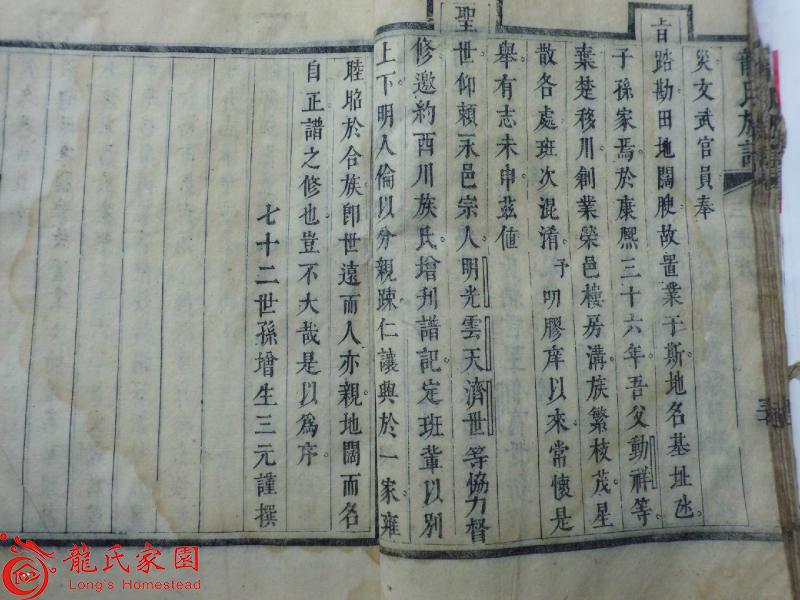 龍氏族譜
災文武官員奉
旨踏勘田地闊腴故置業于斯地名基址
子孫家焉於康熙三十六年吾父動祥等
棄楚移川創業榮邑樓房溝族繁枝茂星
散各處班次混淆予叨膠庠以來常懷是
舉有志未申茲值
聖世仰賴永邑宗人明光雲天濟世等協力督
修邀約酉川族氏增刊譜記定班輩以別
上下明人倫以分親疎仁讓興於一家雍
睦昭於合族卽世遠而人亦親地闊而名
自正譜之修也豈不大哉是以爲序
七十二世孫增生三元謹撰
龍氏家園
Long's Homestead